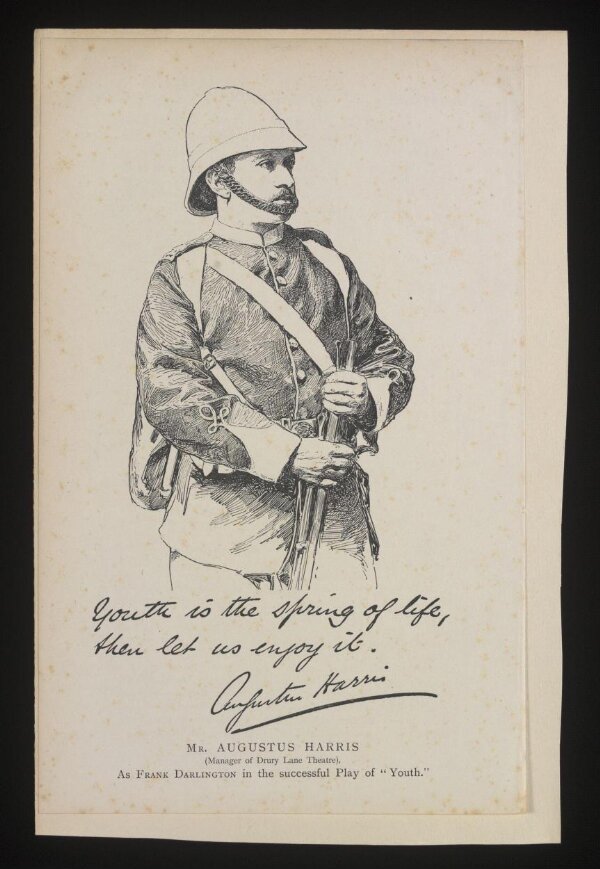 Youth is the spring of life,
then let us enjoy it.
Augustus Harris
Mr. AUGUSTUS HARRIS
(Manager of Drury Lane Theatre),
As Frank Darlington in the successful Play of "Youth."